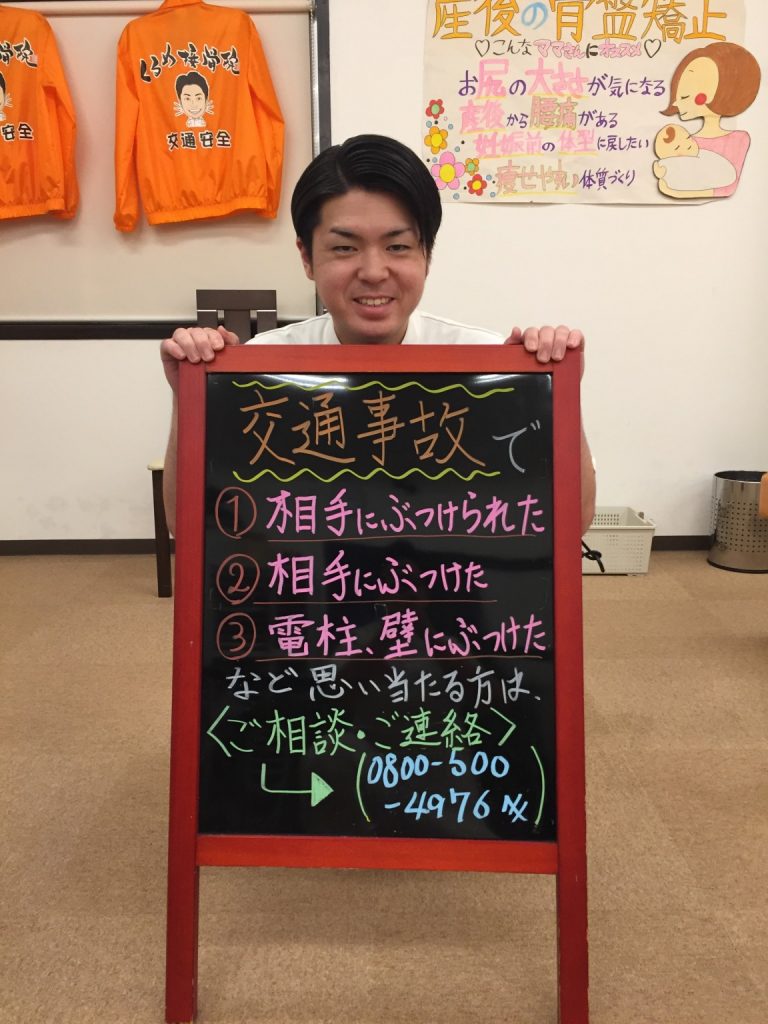 産後の骨盤矯正
♡こんなママさんにオススメ♡
お尻の大きさが気になる
産後から腰痛がある
妊娠前の体型に戻したい
痩せやすい体質づくり
くるめ接骨院
交通安全
安全
交通事故で
① 相手にぶつけられた
② 相手にぶつけた
③ 電柱、壁にぶつけた
など思い当たる方は、
〈ご相談・ご連絡〉
(0800-500
-4976